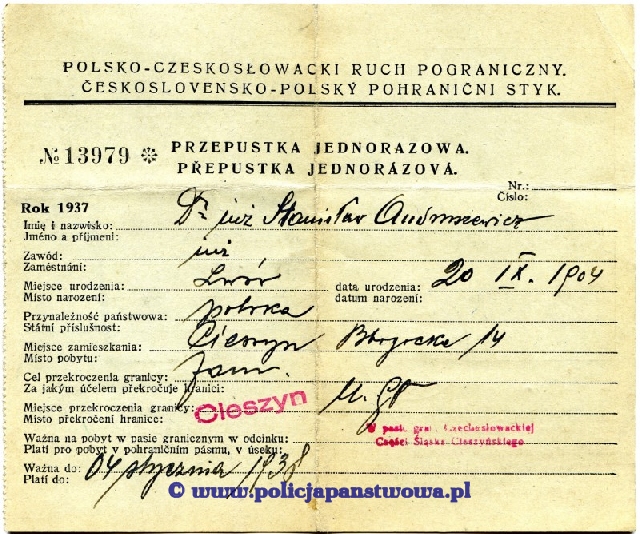 POLSKO-CZESKOSŁOWACKI RUCH POGRANICZNY.
ČESKOSLOVENSKO-POLSKÝ POHRANIČNÍ STYK.
№ 13979 ❊ PRZEPUSTKA JEDNORAZOWA.
PŘEPUSTKA JEDNORÁZOVÁ.
Nr.:
Číslo:
Rok 1937
Imię i nazwisko: Dr inż Stanisław Andruszewicz
Jméno a příjmení:
Zawód: inż
Zaměstnání:
Miejsce urodzenia: Lwów data urodzenia: 20 IX. 1904
Místo narození: datum narození:
Przynależność państwowa: polska
Státní příslušnost:
Miejsce zamieszkania: Cieszyn 14
Místo pobytu:
Cel przekroczenia granicy:
Za jakým účelem překročuje hranici:
Miejsce przekroczenia granicy: Cieszyn
Místo překročení hranice:
W pasie gran. Czechosłowackiej
Części Śląska Cieszyńskiego
Ważna na pobyt w pasie granicznym w odcinku:
Platí pro pobyt v pohraničním pásmu, v úseku:
Ważna do: 04 stycznia 1938
Platí do:
© www.policjapanstwowa.pl